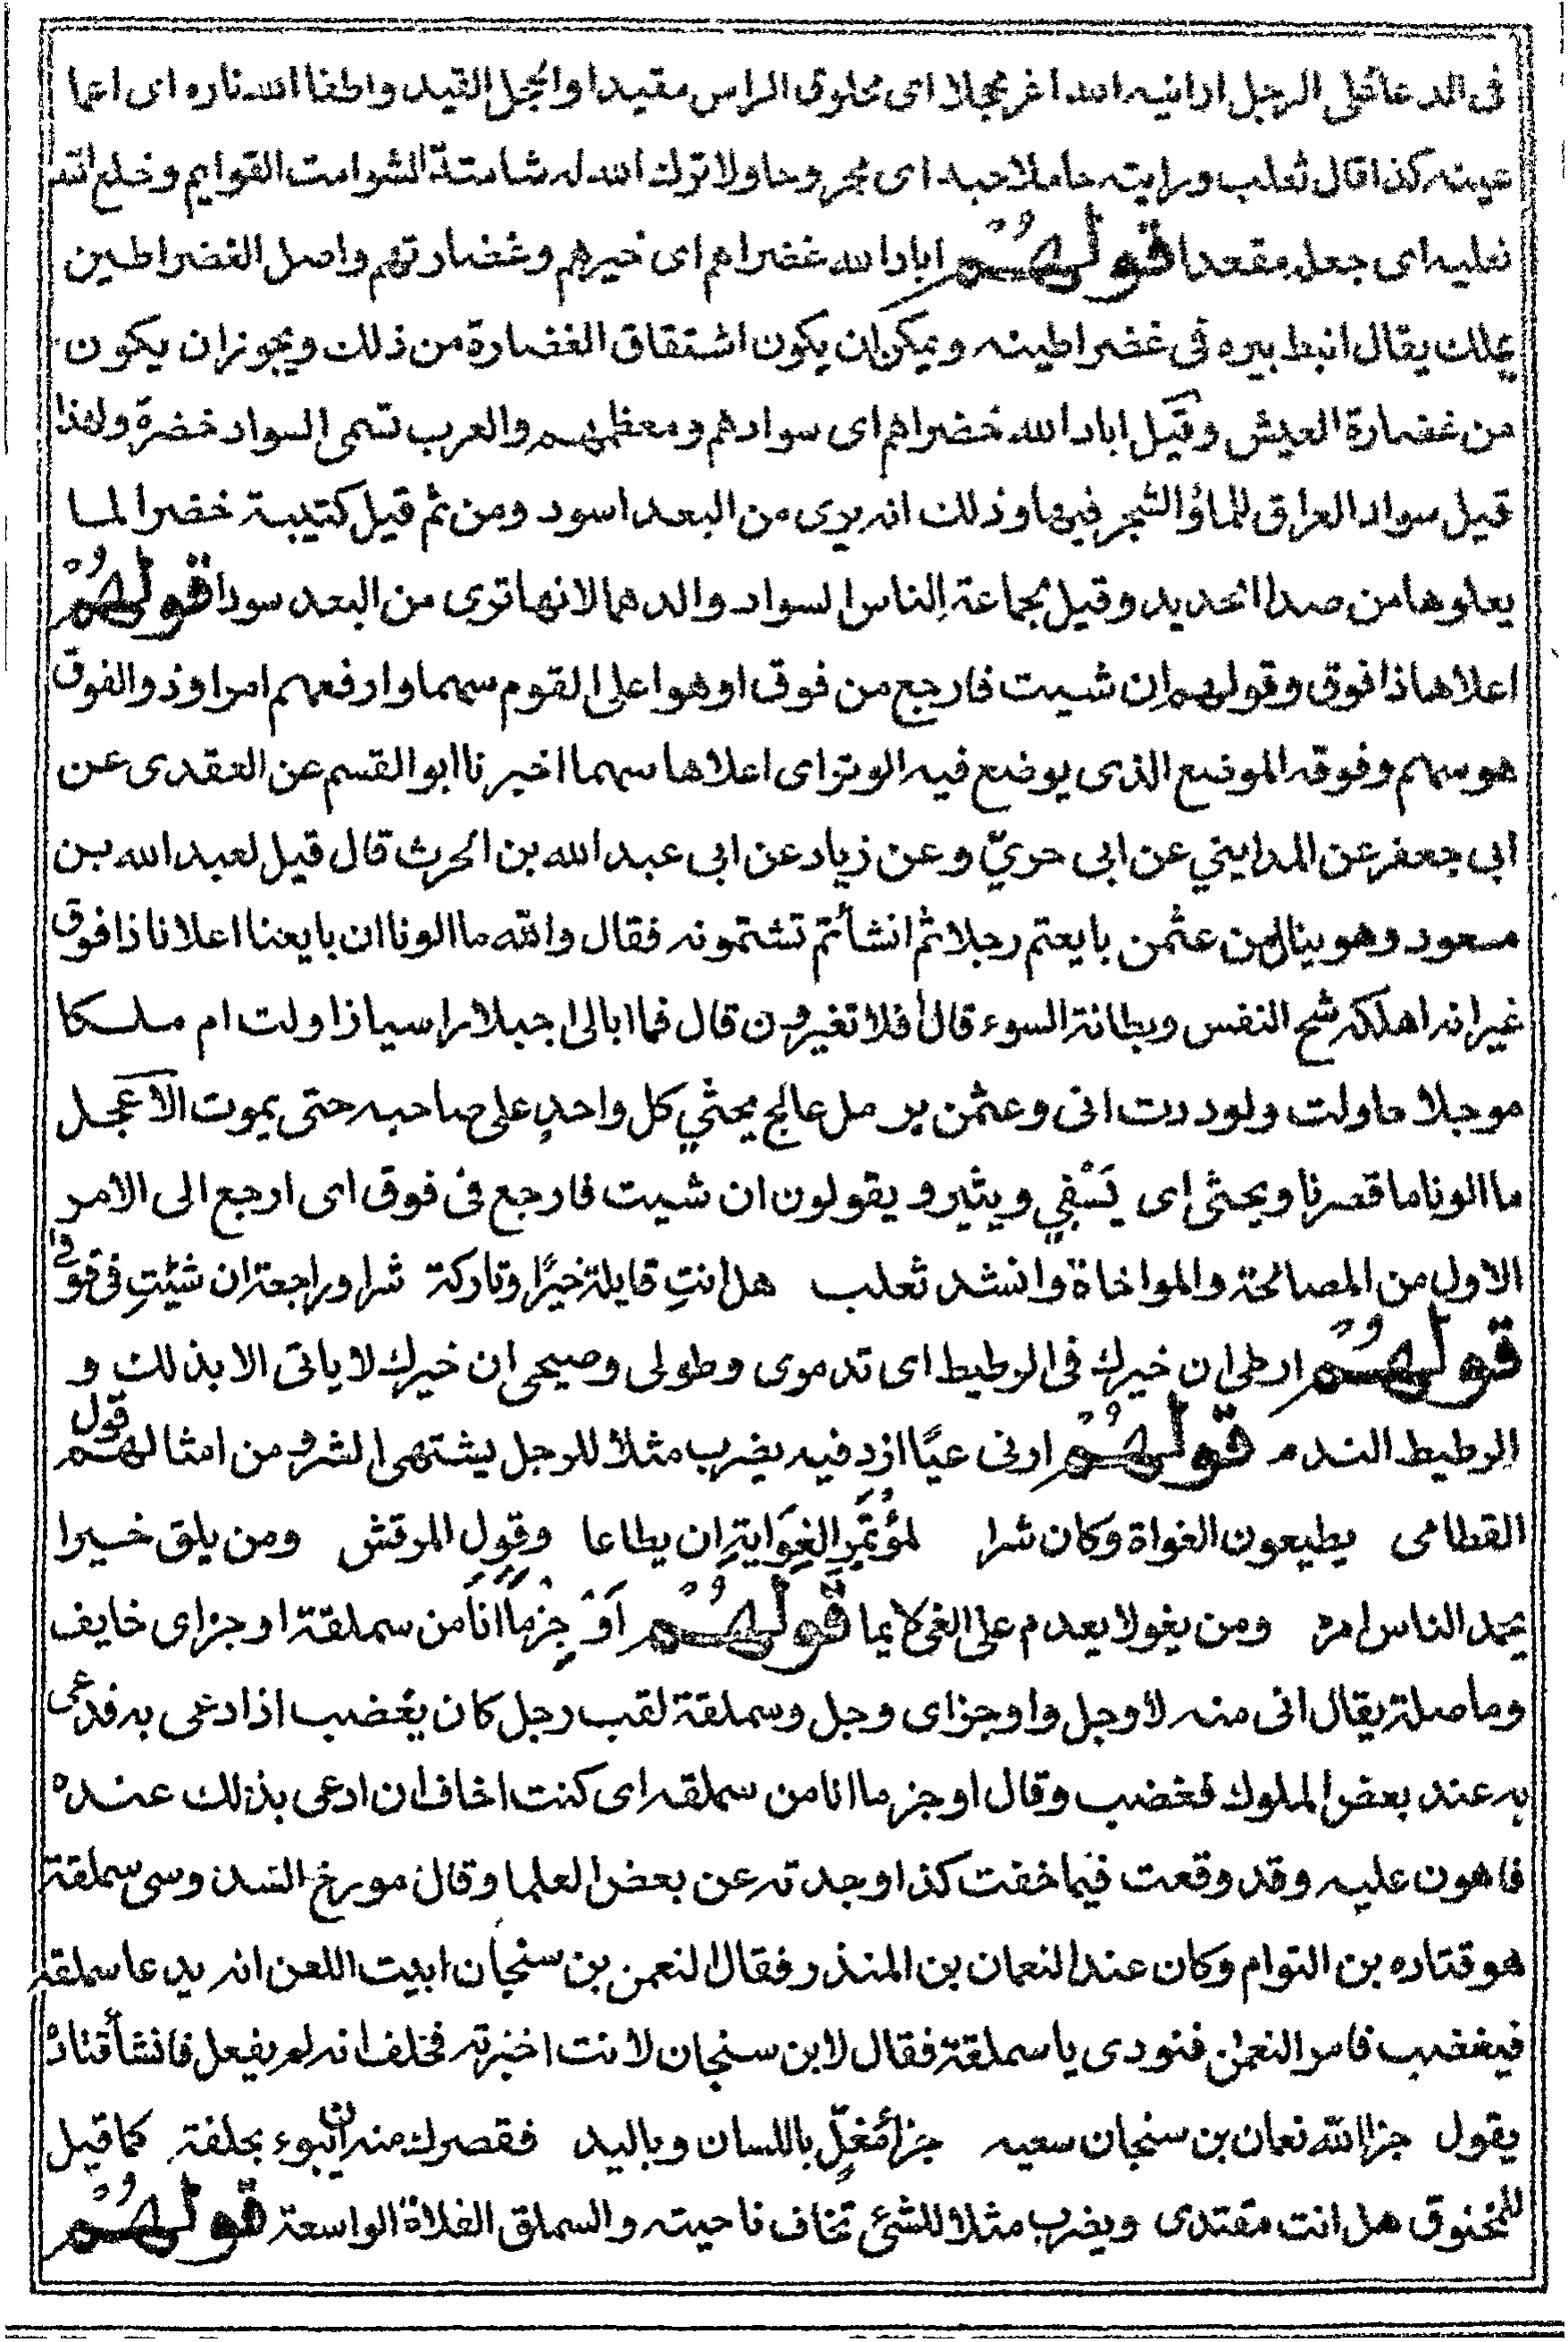 فى الدعا على الرجل ارانيه الله اغر محجلا اى محلوق الراس مقيدا والحجل القيد واطفا الله ناره اى اعما
عينه كذا قال ثعلب ورايته حاملا حبه اى مجروحا ولا ترك الله له شامتة الشوامت القوايم وخلع الله
نعليه اى جعله مقعدا قولهم اباد الله غضراهم اى خيرهم وغضارتهم واصل الغضرا طين
علك يقال انبط بيره فى غضرا طينه ويمكن ان يكون اشتقاق الغضارة من ذلك ويجوز ان يكون
من غضارة العيش وقيل اباد الله خضراهم اى سوادهم ومعظمهم والعرب تسمى السواد خضرة ولهذا
قيل سواد العراق للماؤ الشجر فيها وذلك انه يرى من البعد اسود ومن ثم قيل كتيبة خضرا لما
يعلوها من صدا الحديد وقيل لجماعة الناس السواد والدهما لانها ترى من البعد سودا قولهم
اعلاها ذا فوق وقولهم ان شيت فارجع من فوق او هو اعلى القوم سهما وارفعهم امرا وذو الفوق
هو سهم وفوقه الموضع الذى يوضع فيه الوتر اى اعلاها سهما اخبرنا ابو القسم عن العقدى عن
ابى جعفر عن المدايني عن ابى حريّ وعن زياد عن ابى عبد الله بن الحرث قال قيل لعبد الله بن
مسعود وهو ينال من عثمن بايعتم رجلا ثم انشأتم تشتمونه فقال والله ما الونا ان بايعنا اعلانا ذا فوق
غير انه اهلكه شح النفس وبطانة السوء قال افلا تغيرون قال فما ابالى اجبلا راسيا زاولت ام ملكا
موجلا حاولت ولوددت انى وعثمن برمل عالج يحثي كل واحد على صاحبه حتى يموت الاعجل
ما الونا ما قصرنا ويحثى اى يَسْفِي ويثير ويقولون ان شيت فارجع فى فوق اى ارجع الى الامر
الاول من المصالحة والمواخاة وانشد ثعلب هل انتِ قايلة خيرًا وتاركة شرا وراجعة ان شئتِ فى فوقى
قولهم ارطى ان خيرك فى الرطيط اى تدموى وطولى وصيحى ان خيرك لا ياتى الا بذلك و
الرطيط الندم قولهم ارنى عيًا ازد فيه يضرب مثلا للرجل يشتهى الشر ومن امثالهم قول
القطامى يطيعون الغواة وكان شرا لمؤتمر الغواية ان يطاعا وقول المرقش ومن يلق خيرا
يحمد الناس امره ومن يغو لا يعدم على الغى لايما قولهم اوجز ما انا من سملقة اوجز اى خايف
وما صلة يقال انى منه لاوجل واوجز اى وجل وسملقة لقب رجل كان يغضب اذا دعى به فدعى
به عند بعض الملوك فغضب وقال اوجز ما انا من سملقه اى كنت اخاف ان ادعى بذلك عنده
فاهون عليه وقد وقعت فيما خفت كذا وجدته عن بعض العلما وقال مورخ السدوسى سملقة
هو قتاده بن التوام وكان عند النعمان بن المنذر فقال النعمن بن سنجان ابيت اللعن انه يدعا سملقة
فيغضب فامر النعمن فنودى يا سملقة فقال لابن سنجان لانت اخبرته فحلف انه لم يفعل فانشأ قتادة
يقول جزا الله نعمان بن سنجان سعيه جزا مُغلّ باللسان وباليد فقصرك منه ان يبوء بحلفة كما قيل
للمخنوق هل انت مفتدى ويضرب مثلا للشئ تخاف ناحيته والسملق الفلاة الواسعة قولهم